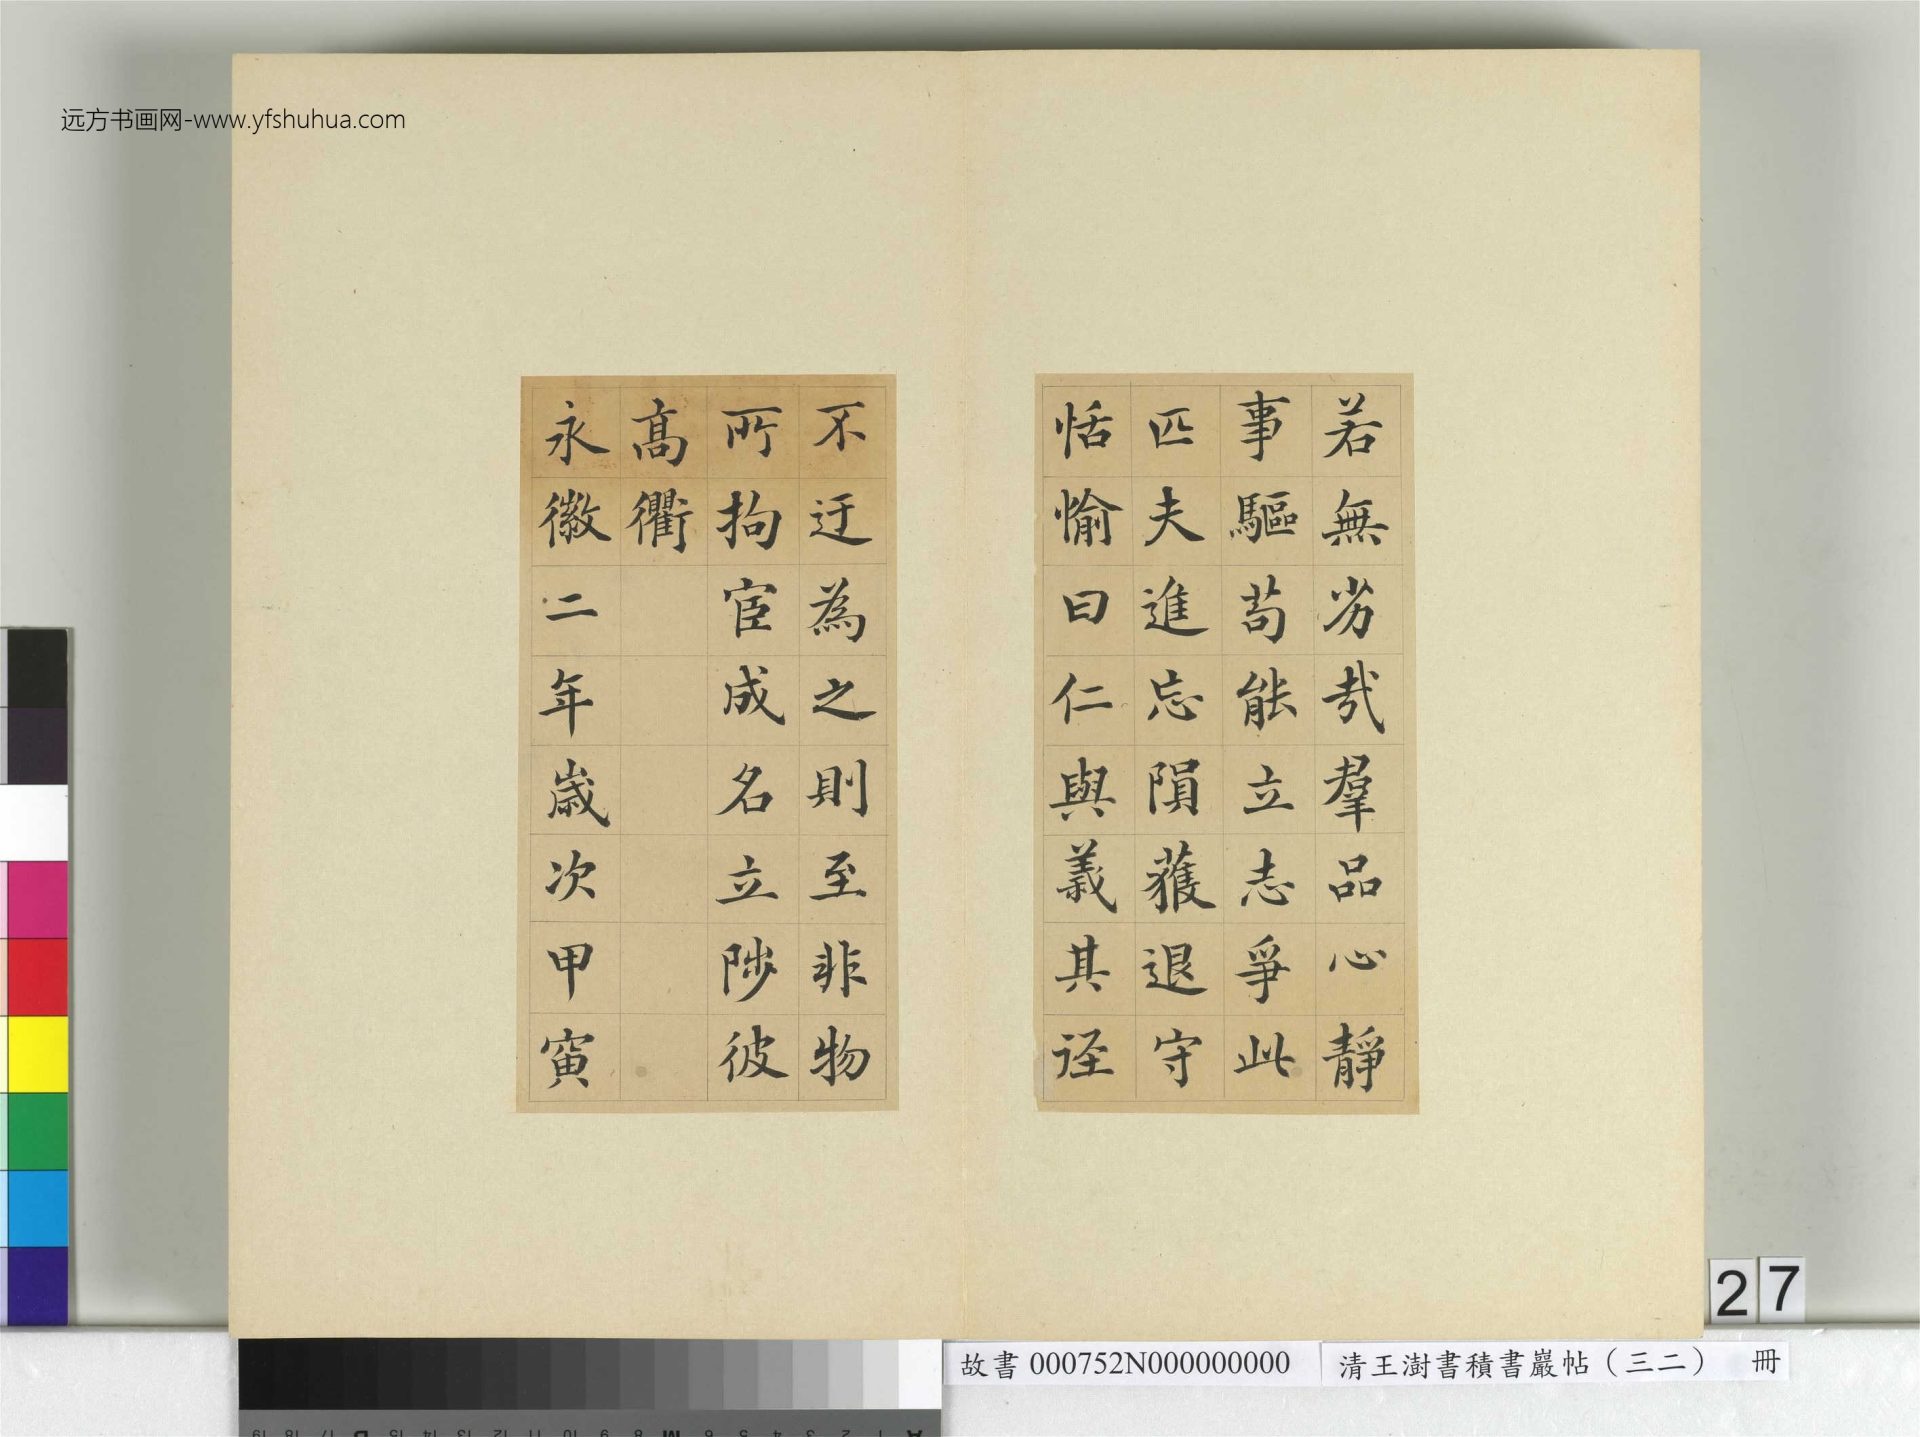 远方书画网-www.yfshuhua.com
若無劣哉羣品心靜
事驅苟能立志爭此
匹夫進忘隕蒦退守
恬愉曰仁與義其迳
不迂為之則至非物
所拘宦成名立陟彼
高衢
永徽二年歲次甲寅
27
故書000752N000000000
清王澍書積書巖帖（三二） 冊